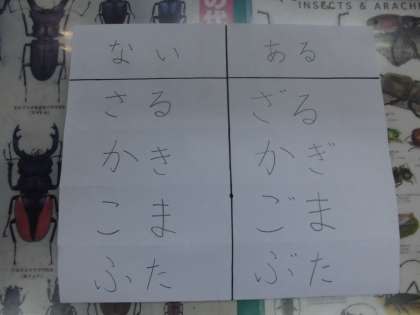 INSECTS &
ない ある
さる ざる
かき かぎ
こま ごま
ふた ぶた